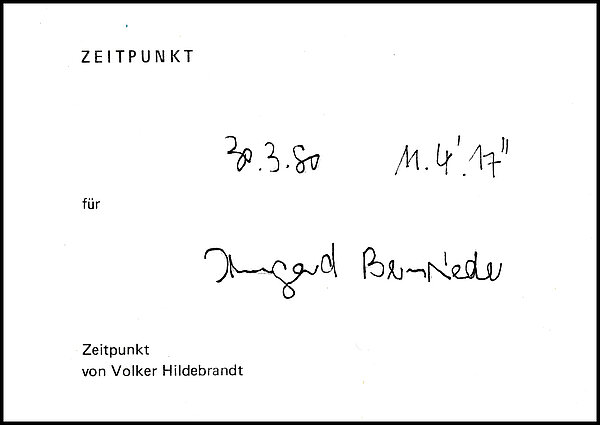 ZEITPUNKT
30.3.80 11.4'.17"
für
Irmgard Bernrieder
Zeitpunkt
von Volker Hildebrandt